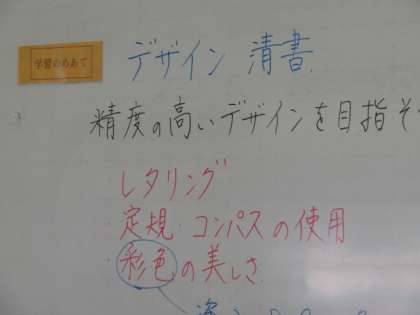 学習のめあて
デザイン 清書
精度の高いデザインを目指そ
・レタリング
・定規・コンパスの使用
・彩色の美しさ